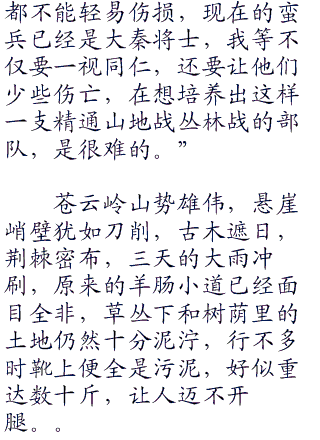 都不能轻易伤损，现在的蛮
兵已经是大秦将士，我等不
仅要一视同仁，还要让他们
少些伤亡，在想培养出这样
一支精通山地战丛林战的部
队，是很难的。”
苍云岭山势雄伟，悬崖
峭壁犹如刀削，古木遮日，
荆棘密布，三天的大雨冲
刷，原来的羊肠小道已经面
目全非，草丛下和树荫里的
土地仍然十分泥泞，行不多
时靴上便全是污泥，好似重
达数十斤，让人迈不开
腿。。